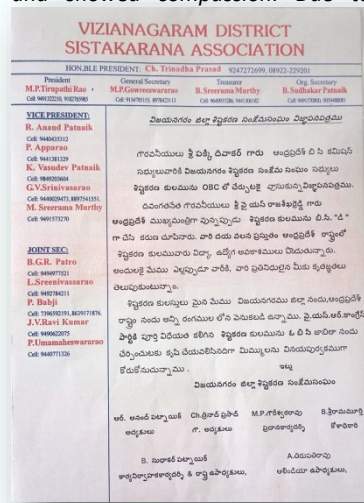 and showed compassion. Due t
VIZIANAGARAM DISTRICT
SISTAKARANA ASSOCIATION
HON,BLE PRESIDENT: Ch. Trinadha Prasad 9247272699, 08922-229201
President
M.P.Tirupathi Rao
General Secretary
M.P.Gowreeswararao
Treasurer
B. Sreerama Murthy
Org. Secretary
B.Sudhakar Patnaik
VICE PRESIDENT:
R. Anand Patnaik
Cell: 9440433312
P. Apparao
Cell: 9441381229
K. Vasudev Patnaik
Cell: 9849203604
G.V.Srinivasarao
Cell: 9440029473, 8897541551,
M. Sreerama Murthy
Cell: 9491573270
JOINT SEC:
B.G.R. Patro
Cell: 9494977521
L.Sreenivassarao
Cell: 9492784211
P. Babji
Cell: 7396592191,8639171876.
J.V.Ravi Kumar
Cell: 9490622075
P.Umamaheswararao
Cell: 9440771326
విజయనగరం జిల్లా శిష్టకరణ సంక్షేమసంఘం విజ్ఞాపనపత్రము
గౌరవనీయులు శ్రీ పక్కి దివాకర్ గారు ఆంధ్రప్రదేశ్ బి సి కమిషన్
సభ్యులువారికి విజయనగరం శిష్టకరణ సంక్షేమ సంఘం సభ్యులు
శిష్టకరణ కులమును OBC లో చేర్చుటకై వ్రాసుకున్నవిజ్ఞాపనపత్రము.
దివంగతనేత గౌరవనీయులు శ్రీ వై యస్ రాజశేఖరరెడ్డి గారు
ఆంధ్రప్రదేశ్ ముఖ్యమంత్రిగా వున్నప్పుడు శిష్టకరణ కులమును బి.సి. "డి"
గా చేసి కరుణ చూపినారు. వారి దయ వలన ప్రస్తుతం ఆంధ్రప్రదేశ్ రాష్ట్రంలో
శిష్టకరణ కులమువారు విద్యా, ఉద్యోగ అవకాశములు పొందుతున్నారు.
అందులకై మేము ఎల్లప్పుడూ వారికి, వారి ప్రతినిధులైన మీకు కృతజ్ఞతలు
తెలుపుకుంటున్నాం.
శిష్టకరణ కులస్తులు మైన మేము విజయనగరము జిల్లా నందు,ఆంధ్రప్రదేశ్
రాష్ట్రం నందు అన్ని రంగముల లోన వెనుకబడి ఉన్నాము. వై.యస్.ఆర్.కాంగ్రేస్
పార్టీకి పూర్తి విధేయత కలిగిన శిష్టకరణ కులమును ఓ బి సి జాబితా నందు
చేర్పించుటకు కృషి చేయవలసినదిగా మిమ్ములను వినయపూర్వకముగా
కోరుకొనుచున్నాము .
ఇట్లు
విజయనగరం జిల్లా శిష్టకరణ సంక్షేమసంఘం
ఆర్. ఆనంద్ పట్నాయిక్ Ch.త్రినాధ్ ప్రసాద్ M.P.గౌరీశ్వరరావు B.శ్రీరామమూర్తి
అధ్యక్షులు గౌ. అధ్యక్షులు ప్రధానకార్యదర్శి కోశాధికారి
B. సుధాకర్ పట్నాయిక్ A.తిరుపతిరావు
కార్యనిర్వాహకకార్యదర్శి & రాష్ట్ర ఉపాధ్యక్షులు, ఆలిండియా ఉపాధ్యక్షులు,